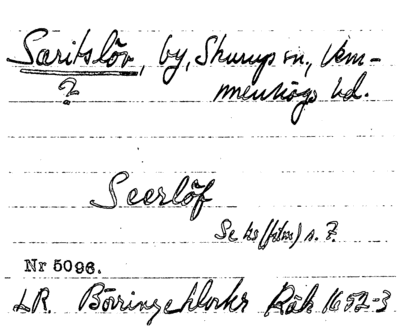 Saritslöv, by, Skurup sn., Vem-
? menhögs hd.
Seerlöf
Se ks (foton) s. 7.
Nr 5096.
LR. Börringeklosters Räk 1652-3